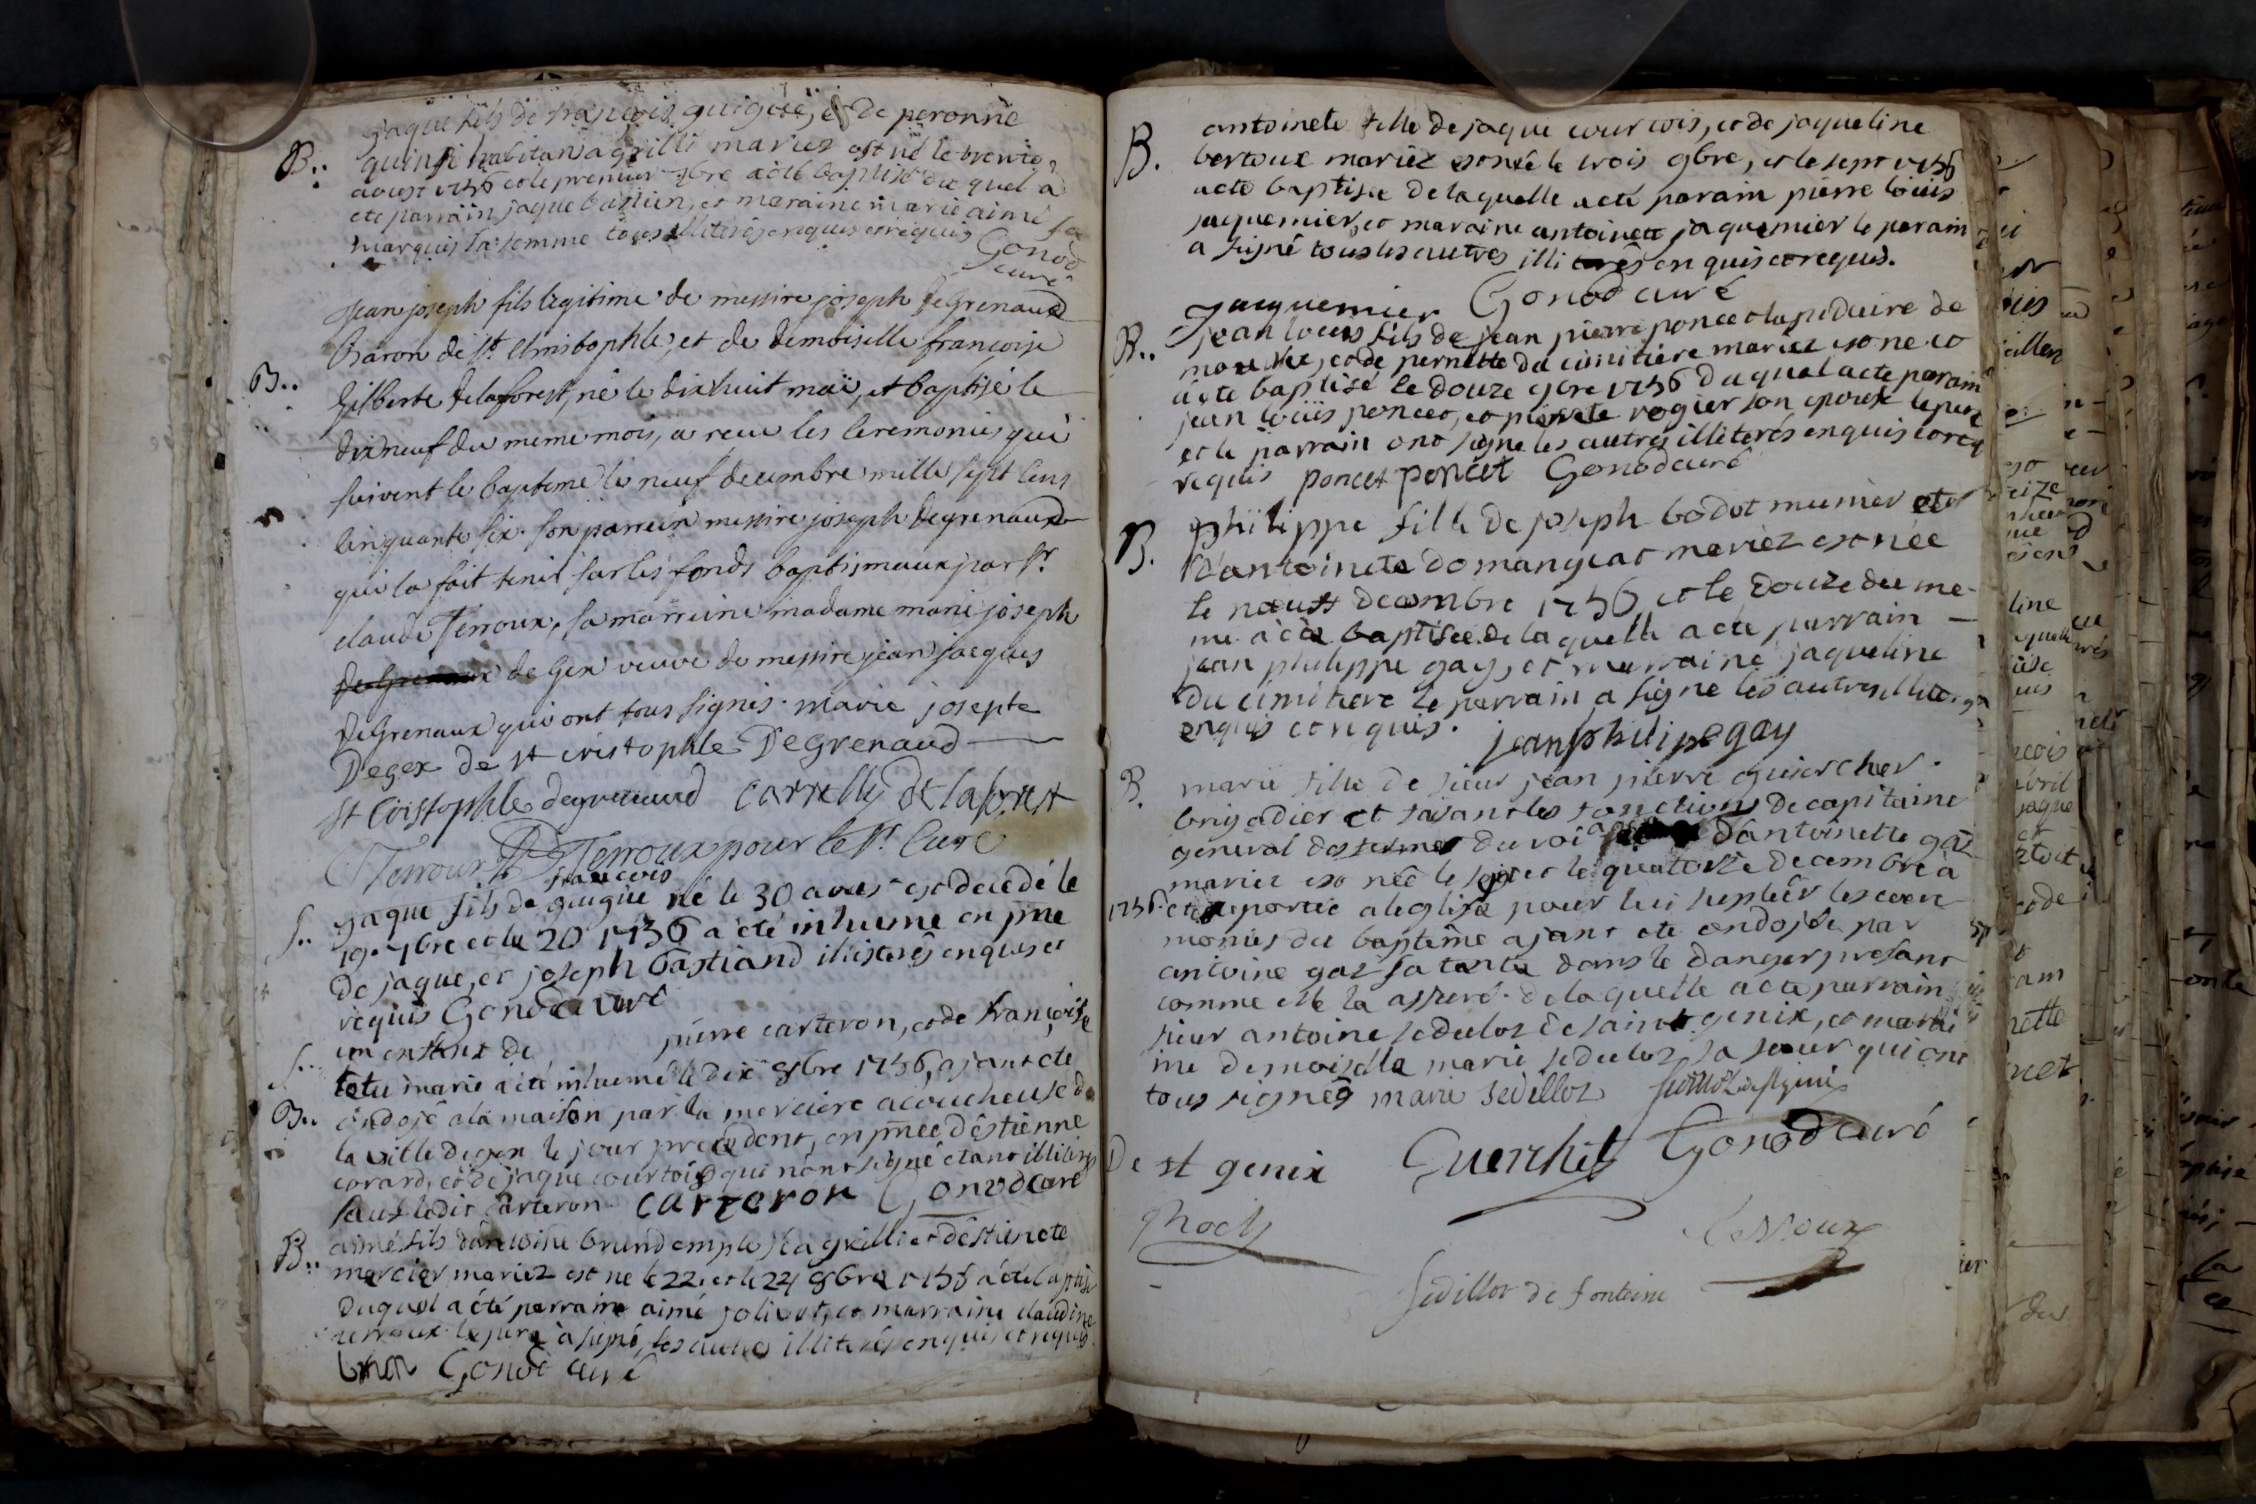 jaque fils de françois guigue, et de peronne
B.. quinsi habitan a grilli mariez est né le trente
aoust 1756 et le premier 7bre a été baptisé du quel a
été parrain jaque bastien, et maraine marie aimé
marquis sa femme tous illiterés enquis et requis
Gonod
curé
Jean joseph fils legitime de messire joseph deGrenaud
Baron de St. Christophle, et de demoiselle françoise
B.. Gilberte delaforest, né le dixhuit maï, et baptisé le
dixneuf du meme mois, a receu les ceremonies qui
suivent le bapteme le neuf decembre mille sept cens
cinquante six. son parrein messire joseph degrenaud
qui la fait tenir sur les fonds baptismaux par Sr.
claude Terroux, sa marreine madame marie joseph
de Gex veuve de messire jean jacques
deGrenaux qui ont tous signés. marie josepte
Degex de st cristophle DeGrenaud
st Cristophle degrenaud Carrelly De laforest
Terroux Terroux pour le Sr. Curé
françois
S.. jaque fils de guigue né le 30 aoust est decedé le
19. 7bre et le 20 1756 a été inhumé en pnce
de jaque, et joseph Bastiand illiterés enquis et
requis Gonod curé
S.. un enfant de pierre carteron, et de françoise
tetu marie a été inhumé le dix 8bre 1756, ajant eté
B.. ondojé a la maison par la merciere acoucheuse de
la ville de gex le jour precedent, en pnce d'estienne
corard, et de jaque courtois qui n'ont signé etant illiterés
sauf ledit Carteron Carteron Gonod curé
B.. aimé fils d'antoine brun demploié a grilli et d'estienete
mercier mariez est né le 22. et le 24 8bre 1756 a été baptisé
Duquel a été parrain aimé jolivet, et marraine claudine
terroux le pere a signé, les autres illiterés enquis et requis
brun Gonod curé
B. antoinete fille de jaque courtois, et de jaqueline
bertoux mariez est née le trois 9bre, et le sept 1756
a été baptisée de laquelle a été parain pierre loüis
jaquemier, et maraine antoinete jaquemier le parain
a signé tous les autres illiterés enquis et requis.
Jacquemier Gonod curé
B.. jean loüis fils de jean pierre poncet lapidaire de
mourex, et de pernette du cimitiere mariez est né et
a été baptisé le douze 9bre 1756 duquel a été parain
jean loüis poncet, et pernete rogier son epouse le pere
et le parrain ont signé les autres illiterés enquis et req
requis poncet poncet Gonod curé
B. philippe fille de joseph bodot munier et
d'antoinete domangeat mariez est née
le neuf decembre 1756 et le douze du me-
me a été baptisée de laquelle a été parrain
jean philippe gay, et marraine jaqueline
du cimitiere le parrain a signé les autres illiterés
enquis et requis.
jean philipe gay
B. marie fille de sieur jean pierre guercher
brigadier et faisant les fonctions de capitaine
general des fermes du roi d'antoinette gaz
mariez est née le sept et le quatorze decembre a
1756 été portée a l'eglise pour lui supléer les cere-
monies du baptême ajant été ondojée par
antoine gaz sa tante dans le danger presant
comme elle la assuré. de laquelle a été parrain
sieur antoine seduloz de saint genix, et marrai
ne demoiselle marie seduloz sa soeur qui ont
tous signés marie sedilloz sedilloz de st genix
De st genix Guerchet Gonod curé
Roch
Sedillot de fonteine